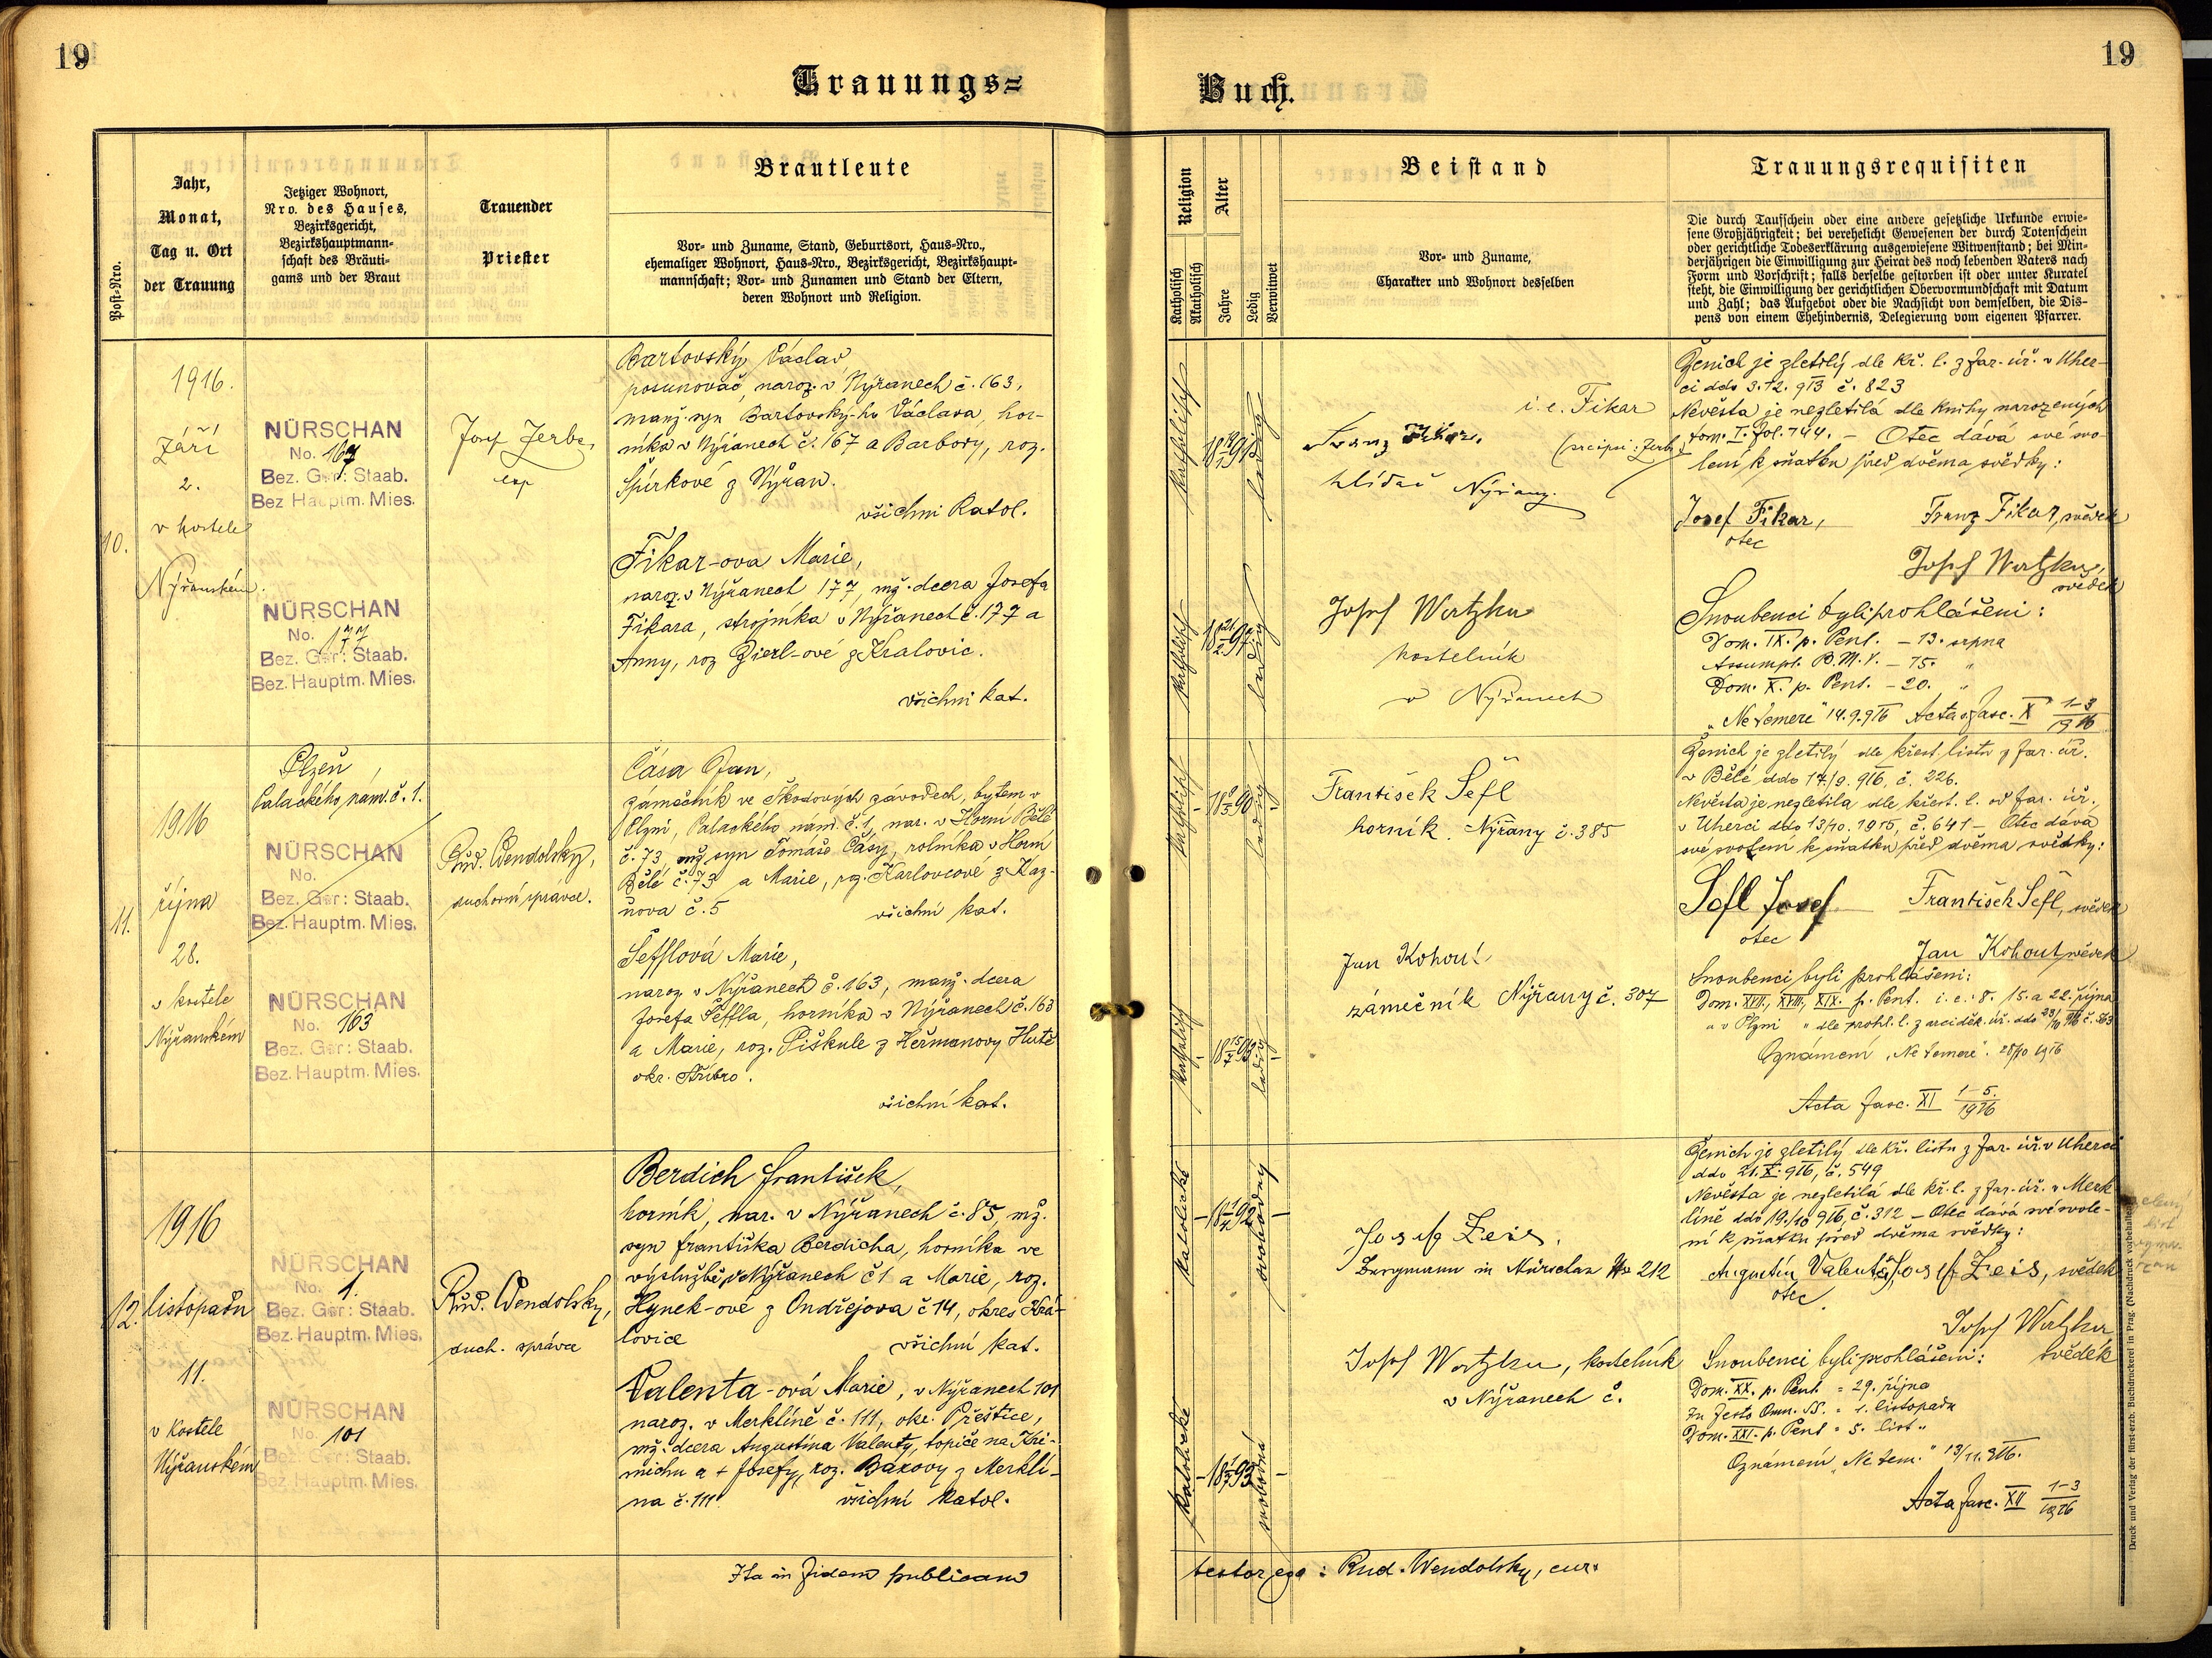 19
19
Trauungs=
Buch.
Post-Nro.
Jahr,
Monat,
Tag u. Ort
der Trauung
Jetziger Wohnort,
Nro. des Hauses,
Bezirksgericht,
Bezirkshauptmann-
schaft des Bräuti-
gams und der Braut
Trauender
Priester
Brautleute
Vor- und Zuname, Stand, Geburtsort, Haus-Nro.,
ehemaliger Wohnort, Haus-Nro., Bezirksgericht, Bezirkshaupt-
mannschaft; Vor- und Zunamen und Stand der Eltern,
deren Wohnort und Religion.
Religion
Katholisch
Akatholisch
Alter
Jahre
Ledig
Verwitwet
Beistand
Vor- und Zuname,
Charakter und Wohnort desselben
Trauungsrequisiten
Die durch Taufschein oder eine andere gesetzliche Urkunde erwie-
sene Großjährigkeit; bei verehelicht Gewesenen der durch Totenschein
oder gerichtliche Todeserklärung ausgewiesene Witwenstand; bei Min-
derjährigen die Einwilligung zur Heirat des noch lebenden Vaters nach
Form und Vorschrift; falls derselbe gestorben ist oder unter Kuratel
steht, die Einwilligung der gerichtlichen Obervormundschaft mit Datum
und Zahl; das Aufgebot oder die Nachsicht von demselben, die Dis-
pens von einem Ehehindernis, Delegierung vom eigenen Pfarrer.
10.
1916.
září
2.
v kostele
Nýřanském.
NÜRSCHAN
No. 167
Bez. Ger: Staab.
Bez Hauptm. Mies.
NÜRSCHAN
No. 177
Bez. Ger: Staab.
Bez. Hauptm. Mies.
Josef Zerbe,
exp
Bartovský Václav,
posunovač, naroz. v Nýřanech č. 163,
manž. syn Bartovský-ho Václava, hor-
níka v Nýřanech č. 167 a Barbory, roz.
Špirkové z Nýřan.
všichni katol.
Fikar-ova Marie,
naroz. v Nýřanech 177, mž. dcera Josefa
Fikara, strojníka v Nýřanech č. 177 a
Anny, roz Zierl-ové z Kralovic.
všichni kat.
katholisch
ledig
katholisch
ledig
i. e. Fikar
Franz Fikar.
hlídač Nýřany.
Josef Wertzka
kostelník
v Nýřanech
Ženich je zletilý dle kř. l. z far. úř. v Uher-
ci ddo 3.12.913 č. 823
Nevěsta je nezletilá dle knihy narozených
tom. I. fol. 144. – Otec dává své svo-
lení k sňatku před dvěma svědky:
Josef Fikar,
otec
Franz Fikar, svědek
Josef Wertzka,
svědek
Snoubenci byli prohlášeni:
Dom. IX. p. Pent. – 13. srpna
Assumpt. B. M. V. – 15. "
Dom. X. p. Pent. – 20. "
"Ne temere" 14.9.916 Acta fasc. X 1-3/1916
11.
1916
října
28.
v kostele
Nýřanském
Plzeň,
Palackého nám. č. 1.
NÜRSCHAN
No.
Bez. Ger: Staab.
Bez. Hauptm. Mies.
NÜRSCHAN
No. 163
Bez. Ger: Staab.
Bez. Hauptm. Mies.
Rud. Wendolský,
duchovní správce.
Čása Jan,
zámečník ve Škodových závodech, bytem v
Plzni, Palackého nám. č. 1, nar. v Horní Bělé
č. 73, mž syn Tomáše Čásy, rolníka v Horní
Bělé č. 73 a Marie, roz. Karlovcové z Kaz-
ňova č. 5 všichni kat.
Šefflová Marie,
naroz. v Nýřanech č. 163, manž. dcera
Josefa Šeffla, horníka v Nýřanech č. 163
a Marie, roz. Piškule z Heřmanovy Hutě
okr. Stříbro.
všichni kat.
katholisch
ledig
katholisch
ledig
František Šefl
horník. Nýřany č. 385
Jan Kohout
zámečník Nýřany č. 307
Ženich je zletilý dle křest. listu z far. úř.
v Bělé ddo 17/9. 916, č. 226.
Nevěsta je nezletila dle křest. l. od far. úř.
v Uherci ddo 13/10. 1915, č. 641 – Otec dává
své svolení k sňatku před dvěma svědky:
Šefl Josef
otec
František Šefl, svědek
Jan Kohout, svědek
Snoubenci byli prohlášeni:
Dom. XVII, XVIII, XIX. p. Pent. i. e. 8. 15. a 22. října
a v Plzni " dle prohl. l. z arciděk. úř. ddo 23/10 916 č. 563
Oznámení "Ne temere". 28/10 1916
Acta fasc. XI 1-5./1916
12.
1916
listopadu
11.
v kostele
Nýřanském
NÜRSCHAN
No. 1.
Bez. Ger: Staab.
Bez. Hauptm. Mies.
NÜRSCHAN
No. 101
Bez. Ger: Staab.
Bez. Hauptm. Mies.
Rud. Wendolský,
duch. správce
Berdich František,
horník, nar. v Nýřanech č. 85, mž.
syn Františka Berdicha, horníka ve
výslužbě v Nýřanech č 1 a Marie, roz.
Hynek-ové z Ondřejova č 14, okres Krá-
lovice všichni kat.
Valenta-ová Marie, v Nýřanech 101
naroz. v Merklíně č. 111, okr. Přeštice,
mž. dcera Augustina Valenty, topiče na Kri-
michu a + Josefy, roz. Bakovy z Merklí-
na č. 111 všichni katol.
katolické
svobodný
katolické
svobodná
Josef Zeis.
Bergmann in Nürschan No 212
Josef Wertzka, kostelník
v Nýřanech č.
Ženich je zletilý dle kř. listu z far. úř. v Uherci
ddo 21. X. 916, č. 549
Nevěsta je nezletilá dle kř. l. z far. úř. v Merk-
líně ddo 19./10 916, č. 312 – Otec dává své svole-
ní k sňatku před dvěma svědky:
Augustin Valenta,
otec.
Josef Zeis, svědek
Josef Wertzka
svědek
Snoubenci byli prohlášeni:
Dom. XX. p. Pent. = 29. října
In festo Omn. SS. = 1. listopadu
Dom. XXI. p. Pent = 5. list..
Oznámení "Ne tem." 13/11. 916.
Acta fasc. XII 1-3/1916
Ita in fidem publicam
testor ego: Rud. Wendolský, cur.
Druck und Verlag der fürst-erzb. Buchdruckerei in Prag. (Nachdruck vorbehalten.)